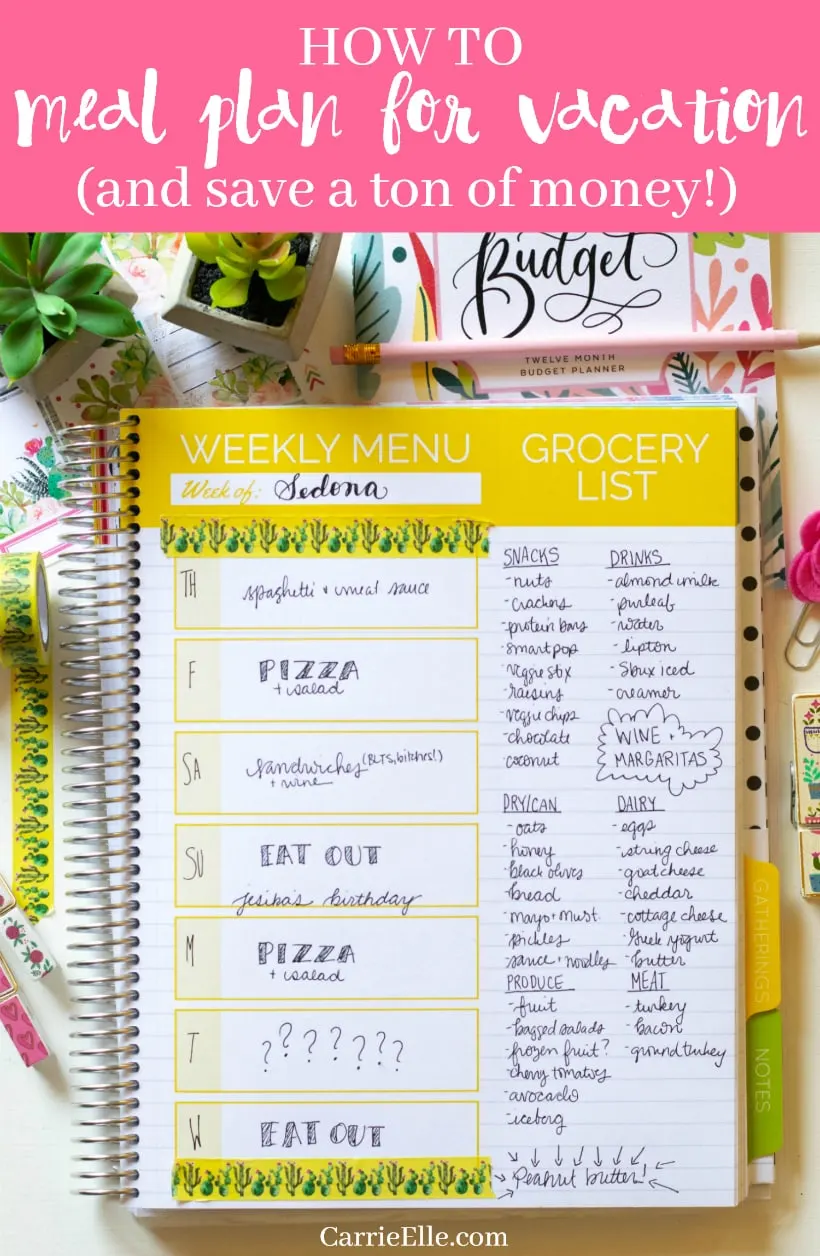 HOW TO
meal plan for vacation
(and save a ton of money!)
Budget
TWELVE MONTH
BUDGET PLANNER
WEEKLY MENU
Week of: Sedona
TH
spaghetti + meat sauce
F
PIZZA
+ salad
SA
sandwiches (BLTs, bitches!)
+ wine
SU
EAT OUT
jesika's birthday
M
PIZZA
+ salad
T
???????
W
EAT OUT
GROCERY
LIST
SNACKS
-nuts
-crackers
-protein bars
-smartpop
-veggie stix
-raisins
-veggie chips
-chocolate
-coconut
DRINKS
-almond milk
-pureleaf
-water
-lipton
-Sbux iced
-creamer
WINE +
MARGARITAS
DRY/CAN
-oats
-honey
-black olives
-bread
-mayo + must.
-pickles
-sauce + noodles
DAIRY
-eggs
-string cheese
-goat cheese
-cheddar
-cottage cheese
-Greek yogurt
-butter
PRODUCE
-fruit
-bagged salads
-frozen fruit?
-cherry tomatoes
-avocado
-iceberg
MEAT
-turkey
-bacon
-ground turkey
Peanut butter!
GATHERINGS
NOTES
CarrieElle.com